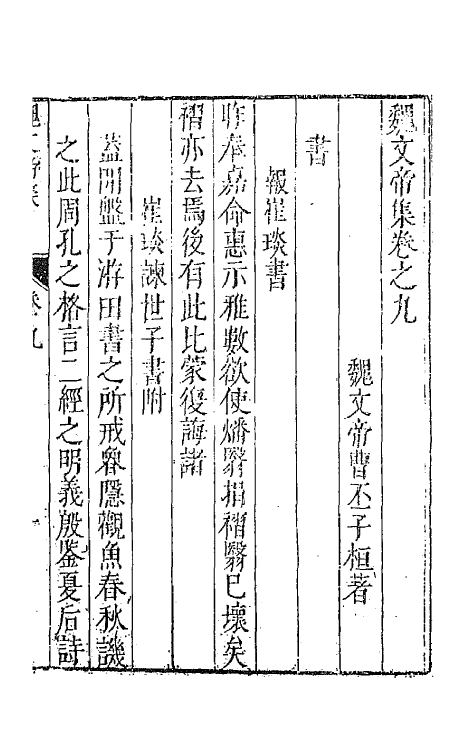 魏文帝集卷之九
魏文帝曹丕子桓著
書
報崔琰書
昨奉嘉命惠示雅數欲使燔翳捐褶翳已壞矣
褶亦去焉後有此比蒙復誨諸
崔琰諫世子書附
蓋聞盤于游田書之所戒魯隱觀魚春秋譏
之此周孔之格言二經之明義殷鉴夏后詩
卷九